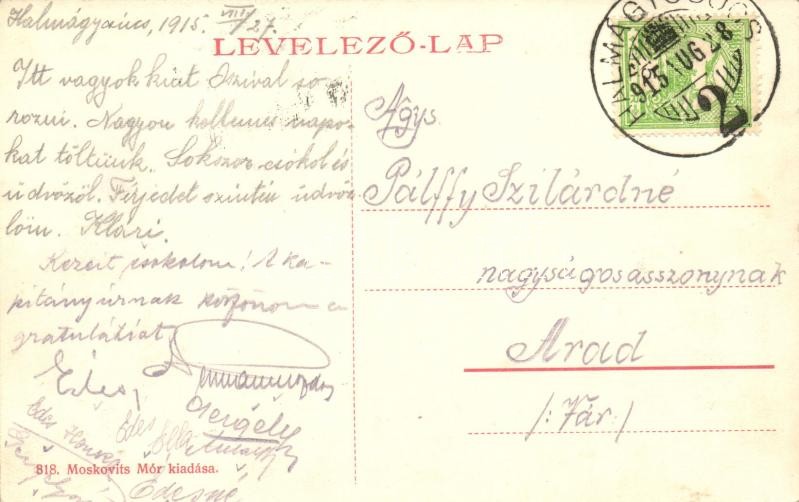 Halmágycsúcs, 1915. VIII/27.
LEVELEZŐ-LAP
Itt vagyok kint Szival so-
rozni. Nagyon kellemes napo-
kat töltünk. Sokszor csókol és
üdvözöl. Férjedet szintén üdvöz-
löm. Klári.
Kezeit csókolom! A ka-
pitányúrnak köszönöm a
gratulátiát
Édes,
Gergely
Édes
Ella
Édesné
818. Moskovits Mór kiadása.
HALMÁGYCSÚCS
915 AUG 28
2
Pálffy Szilárdné
nagyságosasszonynak
Arad
/: Vár /